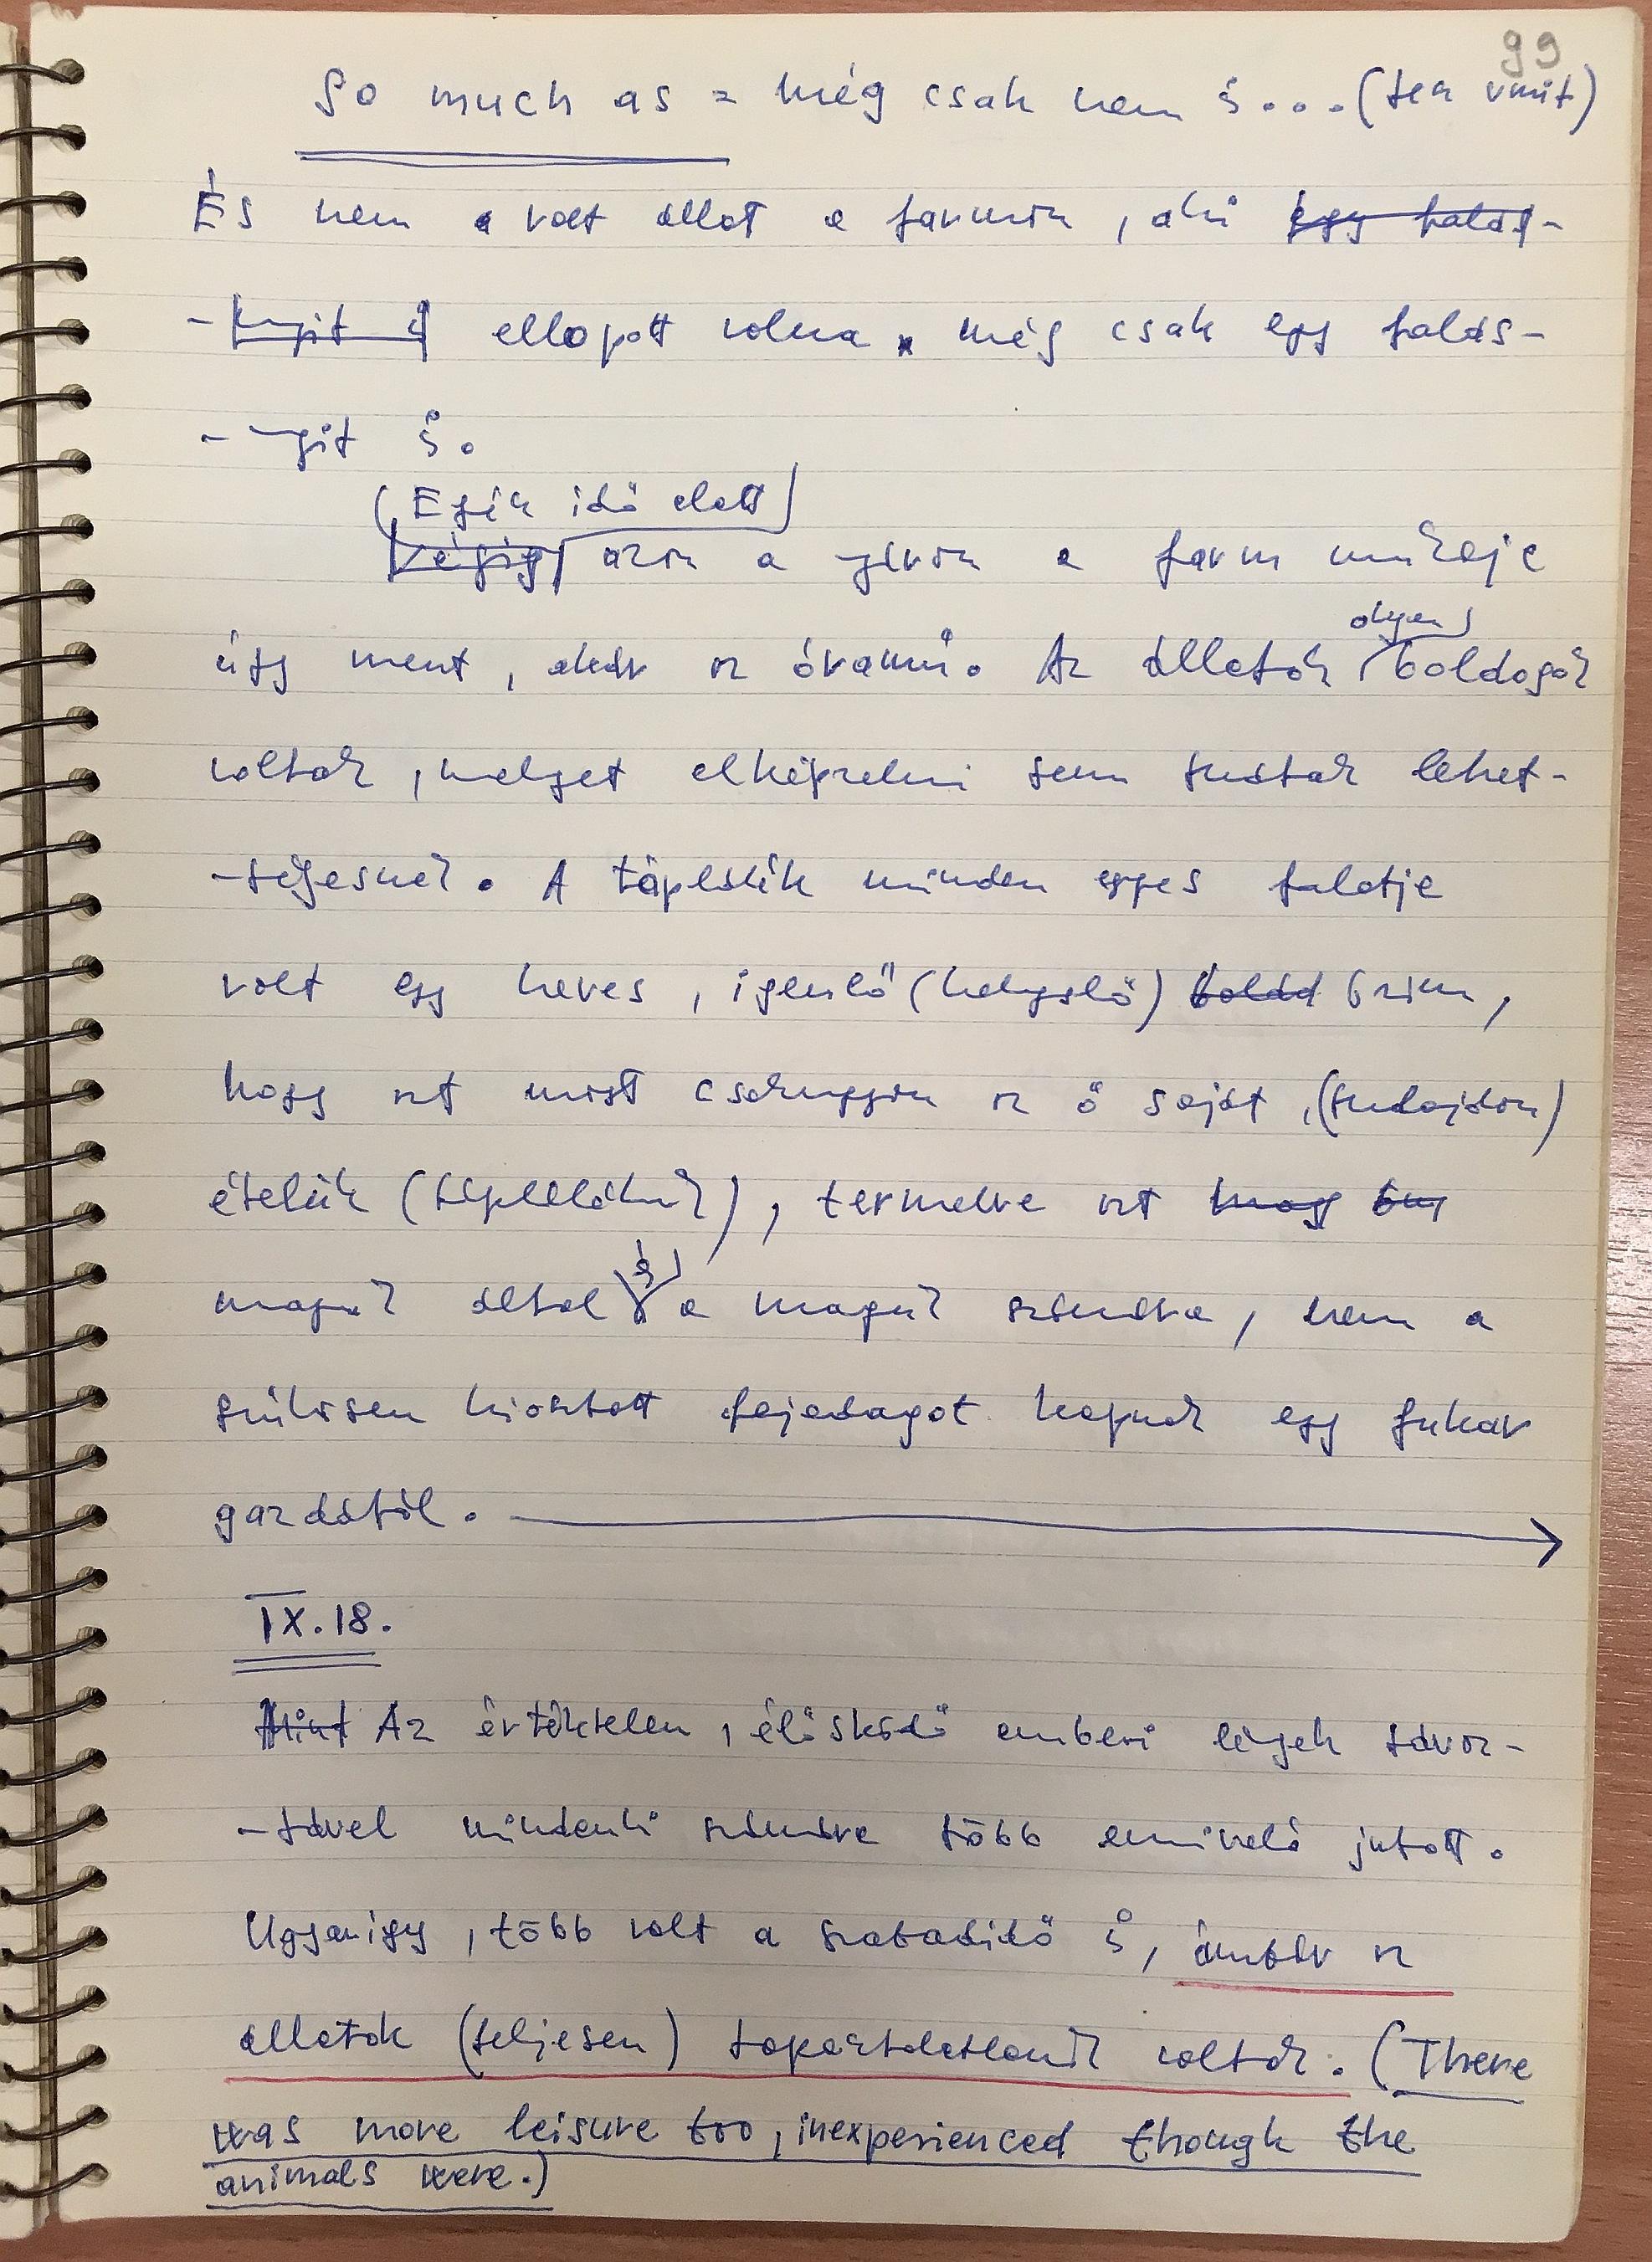 99
So much as = még csak nem is...(tesz vmit)
És nem volt állat a farmon, aki egy falás-
-nyit is ellopott volna, még csak egy falás-
-nyit is.
(Egész idő alatt)
Végig azon a nyáron a farm munkája
olyan
úgy ment, akár az óramű. Az állatok boldogok
voltak, melyet elképzelni sem tudtak lehet-
-ségesnek. A táplálék minden egyes falatja
volt egy heves, igenlő (helyeslő) öröm,
hogy ezt most csakugyan az ő saját, (tulajdon)
ételük (táplálékuk), termelve ezt
és
maguk által a maguk számára, nem a
szűkösen kiosztott fejadagot kapják egy fukar
gazdától.
IX.18.
Mint Az értéktelen, élősködő emberi lények távoz-
-tával mindenki számára több ennivaló jutott.
Ugyanígy, több volt a szabadidő is, ámbár az
állatok (teljesen) tapasztalatlanok voltak. (There
was more leisure too, inexperienced though the
animals were.)